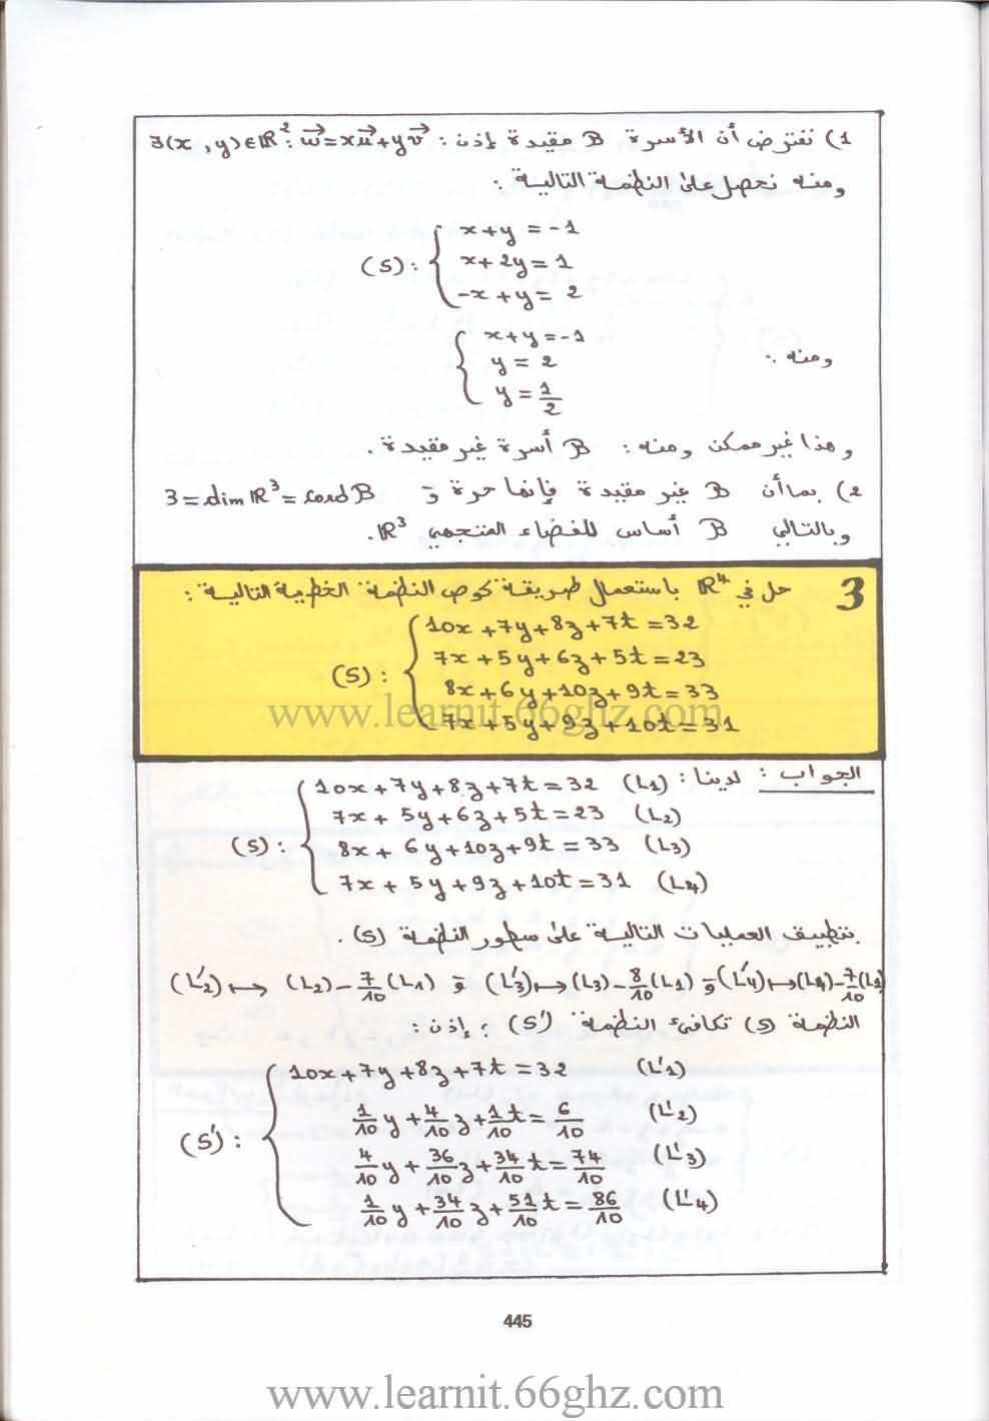 1) نفترض أن الأسرة B مقيدة إذن : ∃(x , y)∈ℝ² : w⃗=xu⃗+yv⃗
ومنه نحصل على النظمة التالية :
(S) : { x+y = -1
x+2y = 1
-x+y = 2
ومنه : { x+y = -1
y = 2
y = 1/2
وهذا غير ممكن ومنه : B أسرة غير مقيدة .
2) بما أن B غير مقيدة فإنها حرة و 3 = dim ℝ³ = card B
وبالتالي B أساس للفضاء المتجهي ℝ³.
3 حل في ℝ⁴ باستعمال طريقة كوص النظمة الخطية التالية :
(S) : { 10x+7y+8z+7t = 32
7x+5y+6z+5t = 23
8x+6y+10z+9t = 33
www.learnit.66ghz.com
7x+5y+9z+10t = 31
الجواب : لدينا : { 10x+7y+8z+7t = 32 (L1)
7x+5y+6z+5t = 23 (L2)
(S) : 8x+6y+10z+9t = 33 (L3)
7x+5y+9z+10t = 31 (L4)
بتطبيق العمليات التالية على سطور النظمة (S) .
(L'2) ↦ (L2) - 7/10 (L1) و (L'3) ↦ (L3) - 8/10 (L1) و (L'4) ↦ (L4) - 7/10 (L1)
النظمة (S) تكافئ النظمة (S') ; إذن :
(S') : { 10x+7y+8z+7t = 32 (L'1)
1/10 y + 4/10 z + 1/10 t = 6/10 (L'2)
4/10 y + 36/10 z + 34/10 t = 74/10 (L'3)
1/10 y + 34/10 z + 51/10 t = 86/10 (L'4)
445
www.learnit.66ghz.com